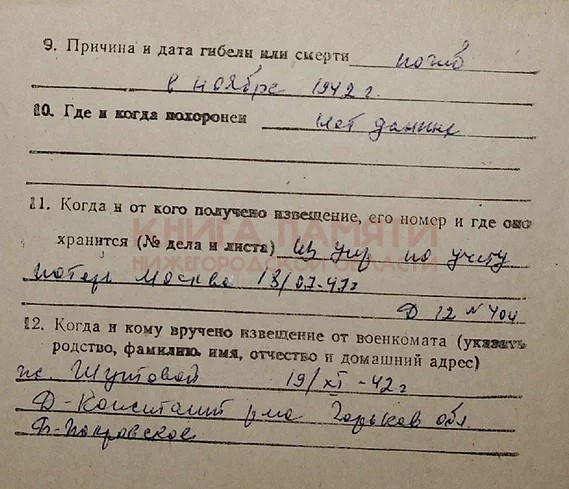 9. Причина и дата гибели или смерти погиб
в ноябре 1942 г.
10. Где и когда похоронен Нет данных
11. Когда и от кого получено извещение, его номер и где оно
КНИГА ПАМЯТИ
хранится (№ дела и листа) из упр по учету
НИЖЕГОРОДСКОЙ ОБЛАСТИ
потерь Москва 13/07-47г
Д 12 № 404
12. Когда и кому вручено извещение от военкомата (указать
родство, фамилию, имя, отчество и домашний адрес)
Шутовой 19/XI-42г
Горьков обл
Покровское